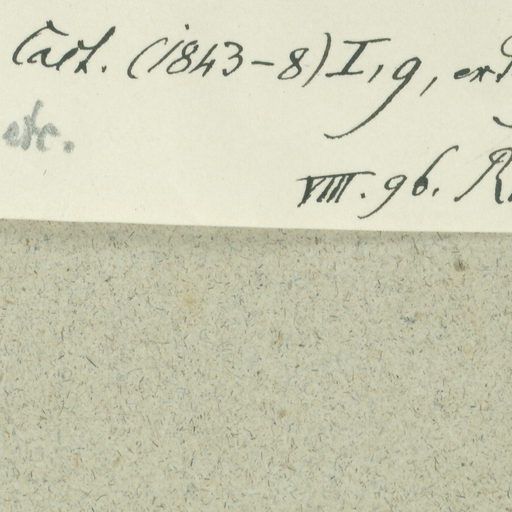 Cath. (1843-8) I, 9,
etc.
VIII. 96.